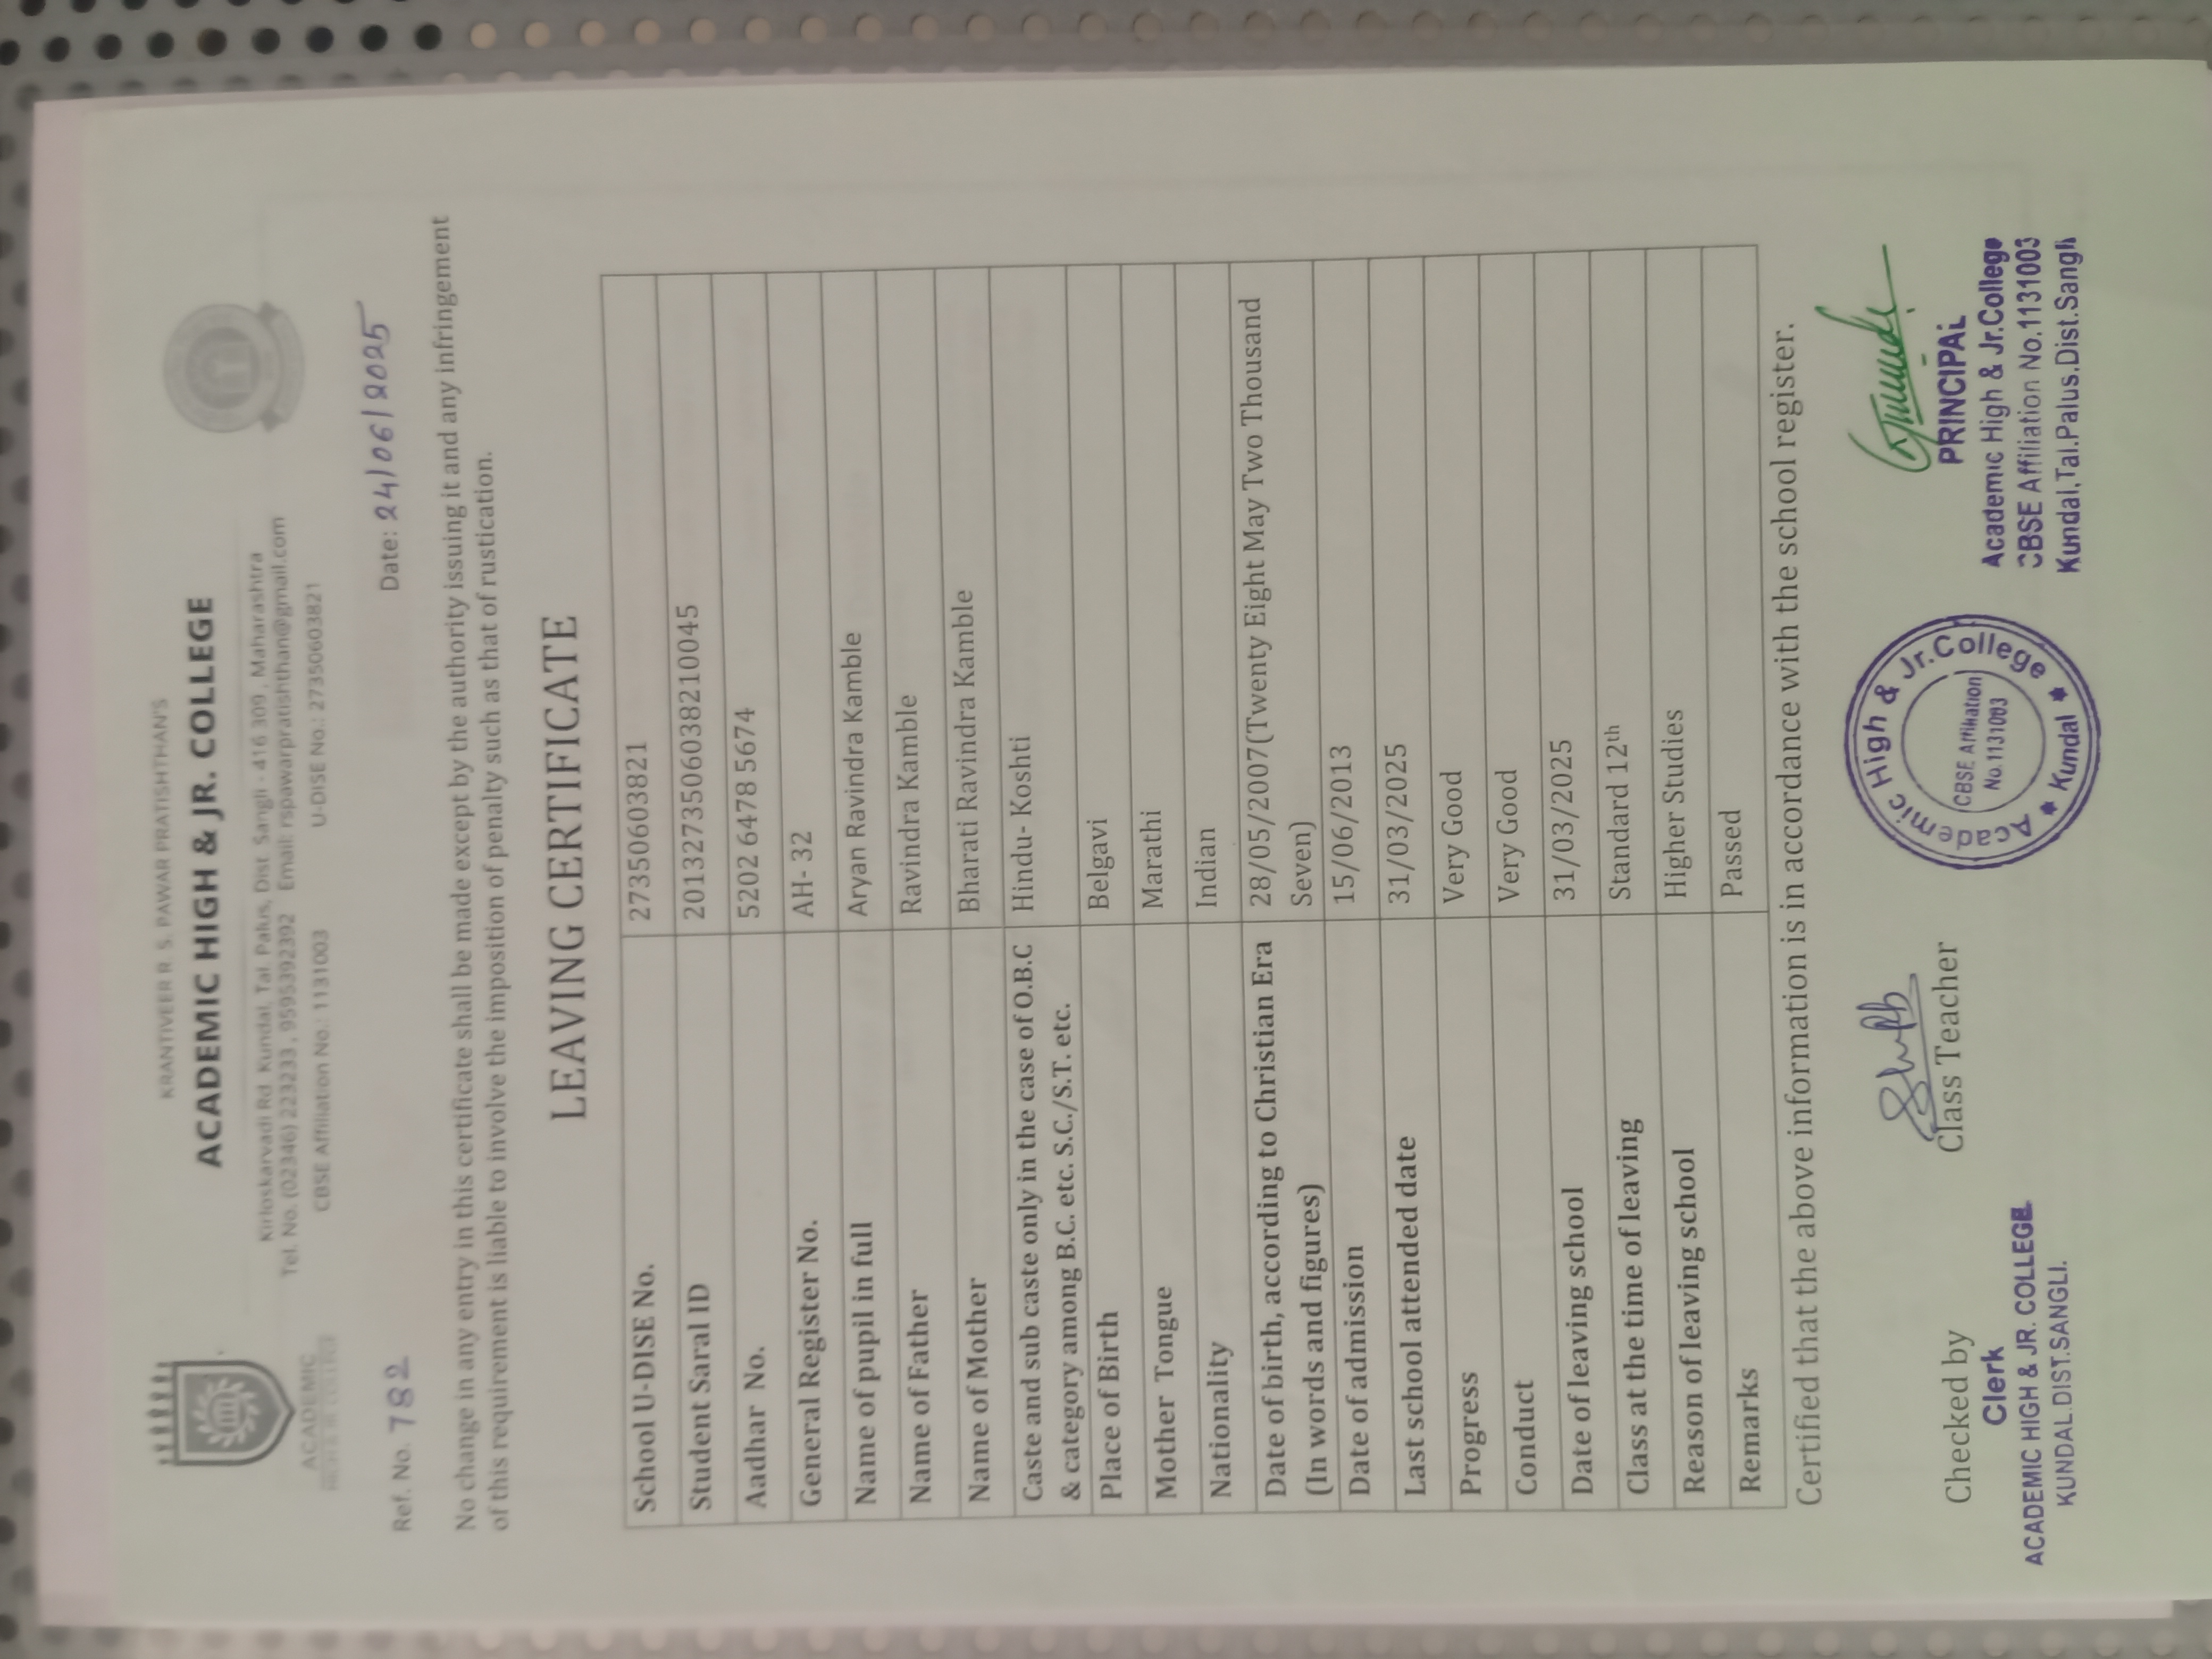 KRANTIVEER R. S. PAWAR PRATISHTHAN'S
ACADEMIC HIGH & JR. COLLEGE
Kirloskarvadi Rd Kundal, Tal. Palus, Dist Sangli - 416 309 , Maharashtra
Tel. No. (02346) 223233 , 9595392392 Email: rspawarpratishthan@gmail.com
CBSE Affiliation No.: 1131003 U-DISE No.: 27350603821
ACADEMIC
Ref. No. 782 Date: 24/06/2025
No change in any entry in this certificate shall be made except by the authority issuing it and any infringement
of this requirement is liable to involve the imposition of penalty such as that of rustication.
LEAVING CERTIFICATE
School U-DISE No. 27350603821
Student Saral ID 2013273506038210045
Aadhar No. 5202 6478 5674
General Register No. AH- 32
Name of pupil in full Aryan Ravindra Kamble
Name of Father Ravindra Kamble
Name of Mother Bharati Ravindra Kamble
Caste and sub caste only in the case of O.B.C Hindu- Koshti
& category among B.C. etc. S.C./S.T. etc.
Place of Birth Belgavi
Mother Tongue Marathi
Nationality Indian
Date of birth, according to Christian Era 28/05/2007(Twenty Eight May Two Thousand
(In words and figures) Seven)
Date of admission 15/06/2013
Last school attended date 31/03/2025
Progress Very Good
Conduct Very Good
Date of leaving school 31/03/2025
Class at the time of leaving Standard 12th
Reason of leaving school Higher Studies
Remarks Passed
Certified that the above information is in accordance with the school register.
Checked by
Clerk
ACADEMIC HIGH & JR. COLLEGE
KUNDAL.DIST.SANGLI.
Class Teacher
Academic High & Jr.College
Kundal
CBSE Affiliation
No.1131003
PRINCIPAL
Academic High & Jr.College
CBSE Affiliation No.1131003
Kundal,Tal.Palus.Dist.Sangli